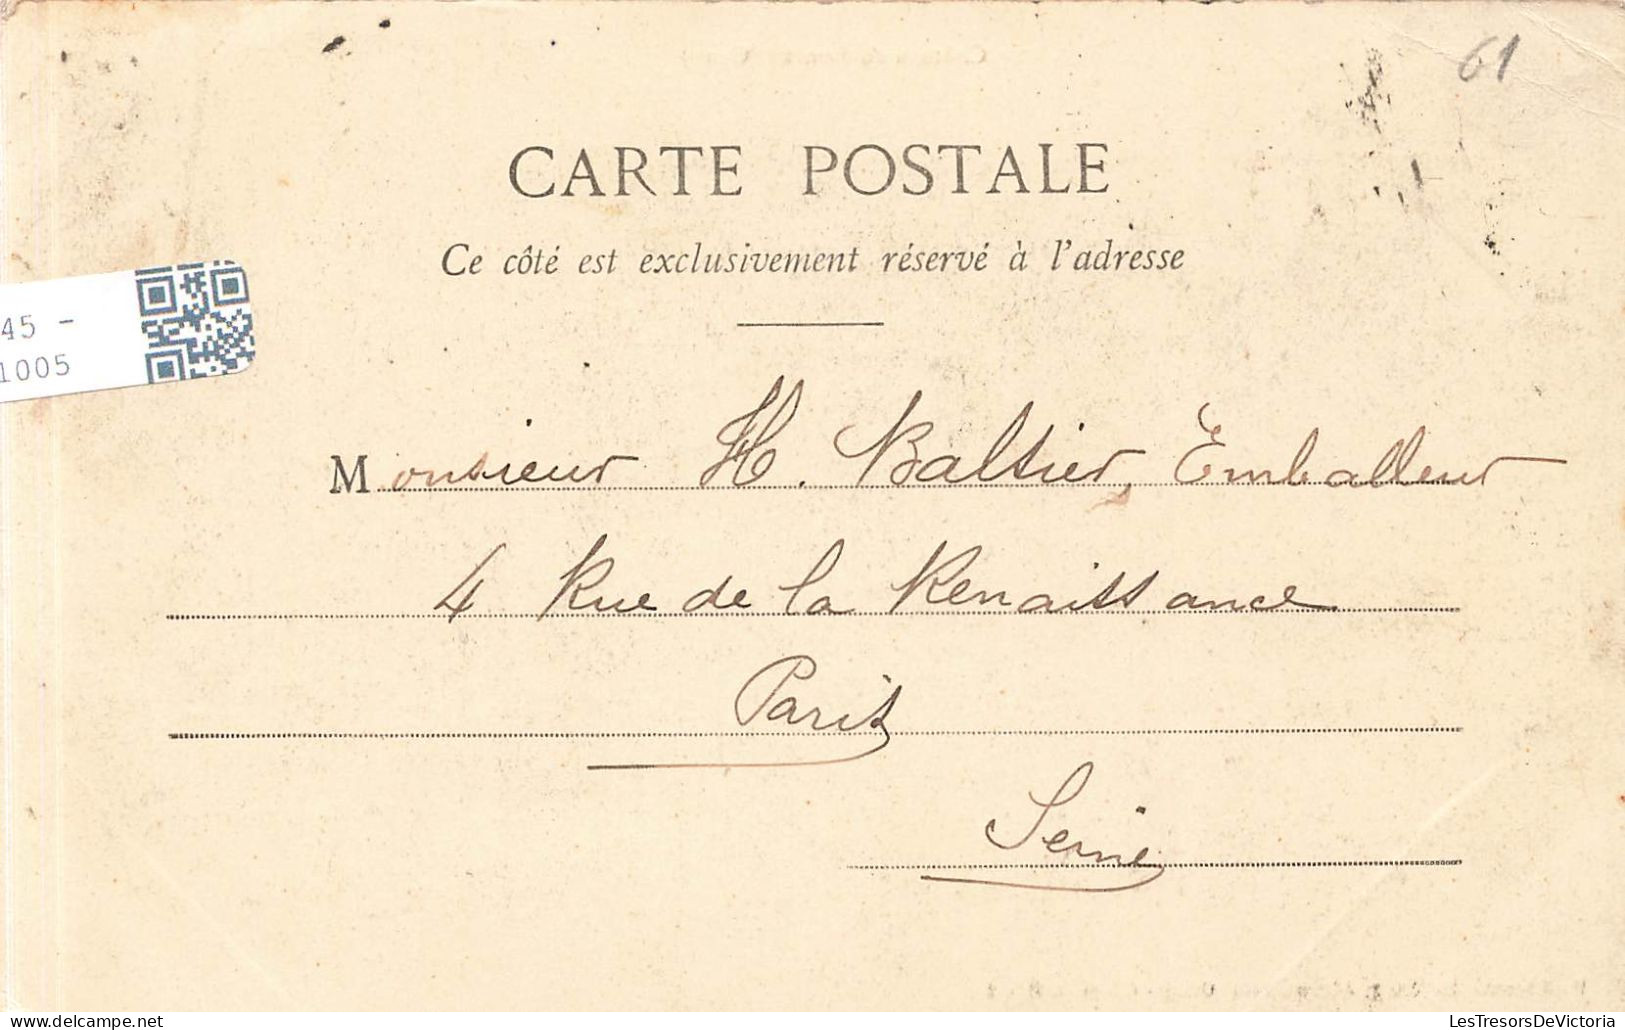 61
CARTE POSTALE
Ce côté est exclusivement réservé à l'adresse
45 -
1005
Monsieur H. Baltier, Emballeur
4 Rue de la Renaissance
Paris
Seine
LesTresorsDeVictoria